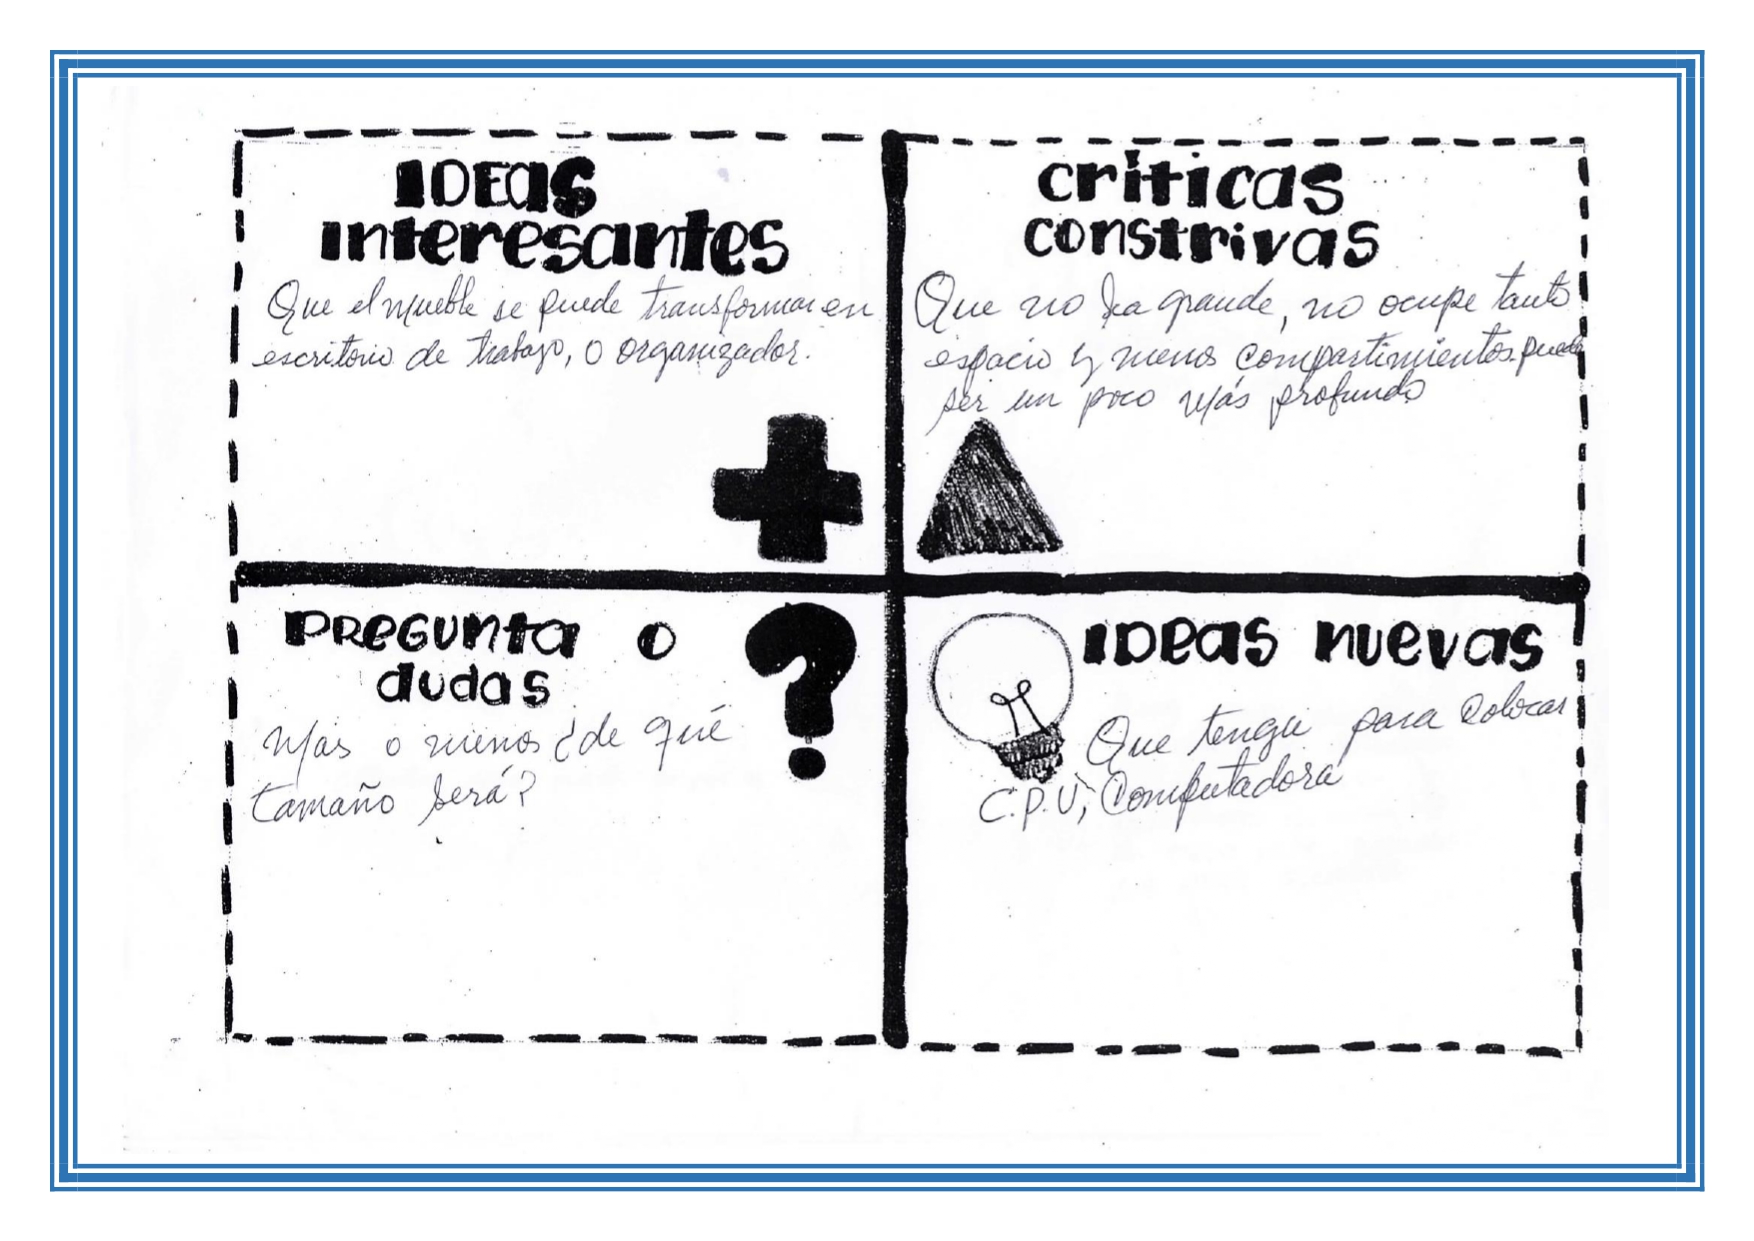 IDEas
interesantes
Que el mueble se puede transformar en
escritorio de trabajo, o organizador.
críticas
constrivas
Que no sea grande, no ocupe tanto
espacio y menos compartimientos. puede
ser un poco más profundo
PREGUNTA O
dudas
Mas o menos ¿de qué
tamaño será?
IDeas nuevas
Que tenga para colocar
C.P.U, Computadora